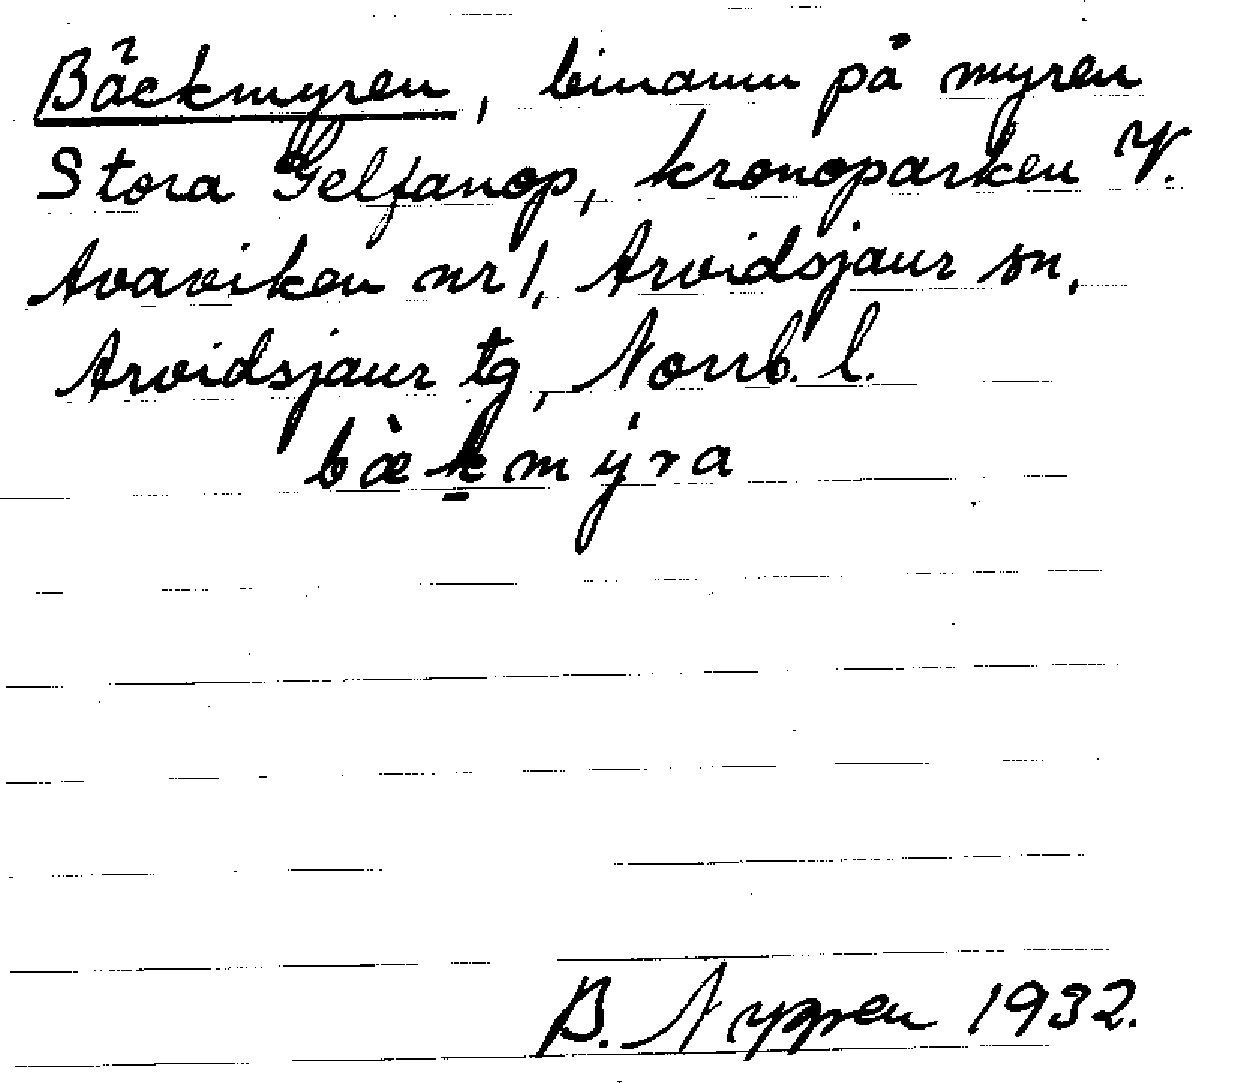 Bäckmyren, binamn på myren
Stora Gelfanop, kronoparken V.
Avaviken nr 1, Arvidsjaur sn,
Arvidsjaur tg, Norrb. l.
bæ̀kmýra
B. Nyppen 1932.